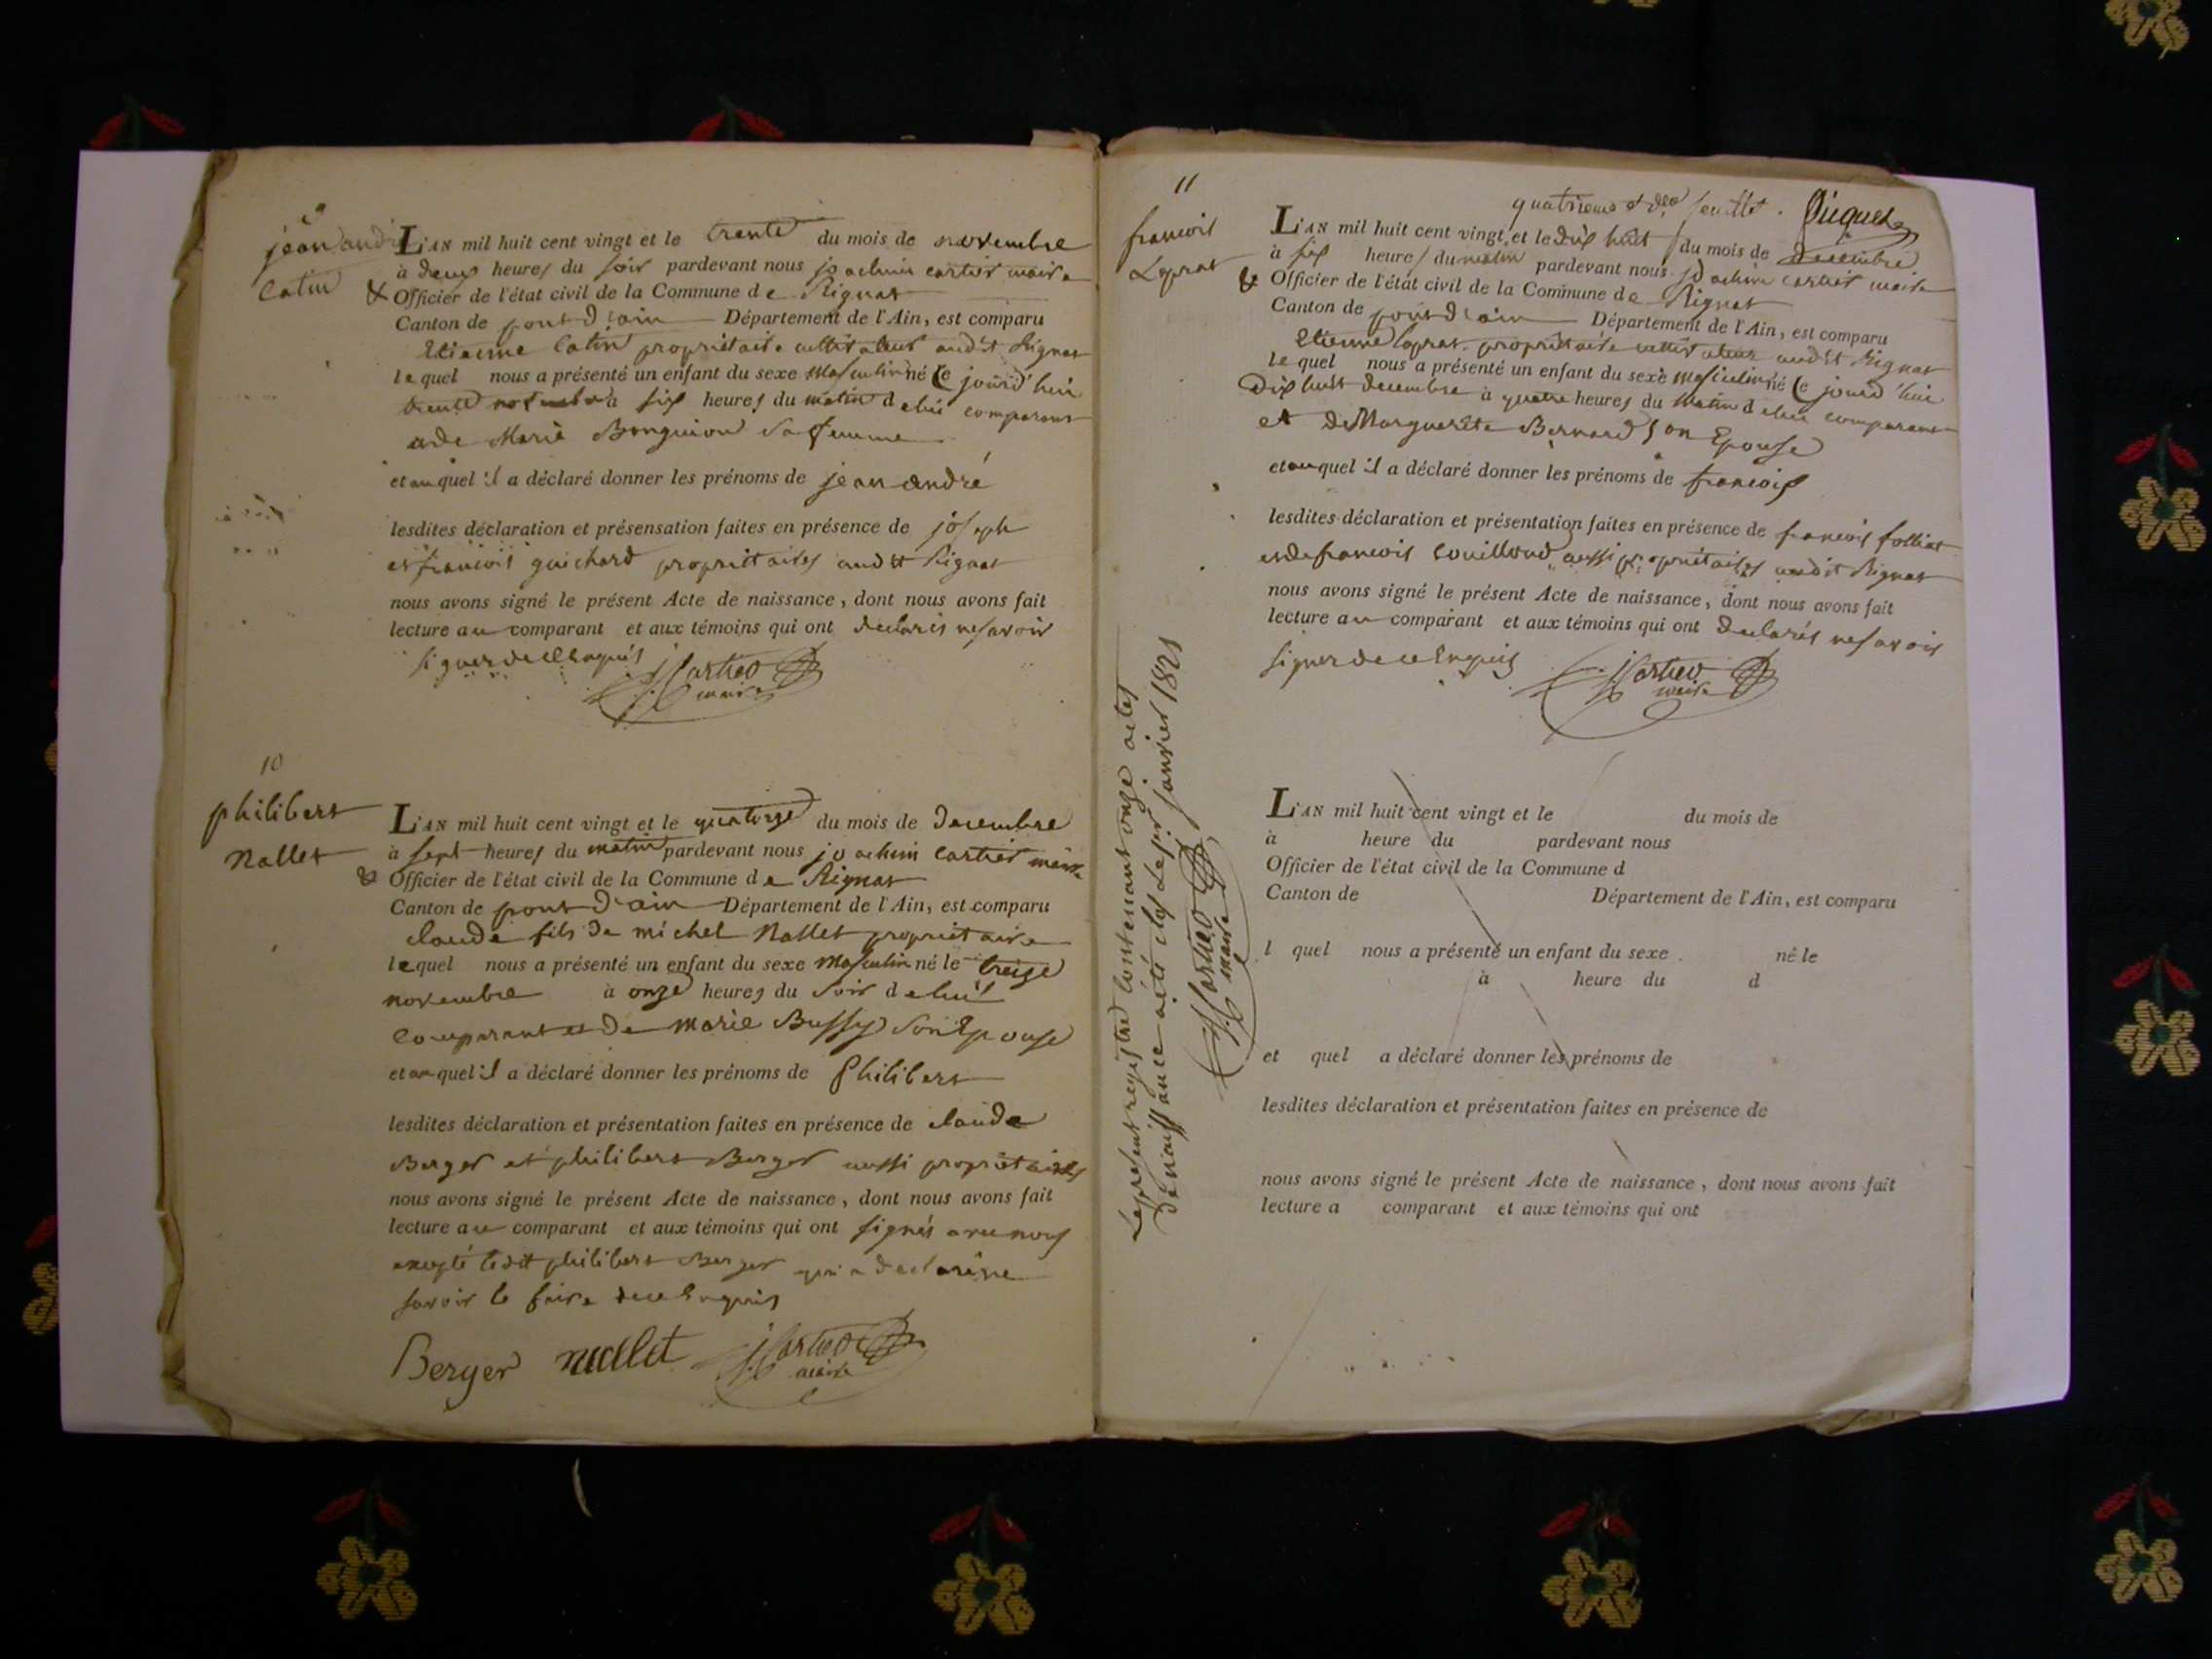 9
jean andré
Catin
L'AN mil huit cent vingt et le trente du mois de novembre
à deux heures du soir pardevant nous joachim cartier maire
& Officier de l'état civil de la Commune de Rignat
Canton de pont d'ain Département de l'Ain, est comparu
Etienne Catin propriétaire cultivateur audit Rignat
lequel nous a présenté un enfant du sexe masculin né ce jourd'hui
trente novembre à six heures du matin de lui comparant
et de Marie Bonguion sa femme
et auquel il a déclaré donner les prénoms de jean andré
lesdites déclaration et présensation faites en présence de joseph
et françois guichard propriétaires audit Rignat
nous avons signé le présent Acte de naissance, dont nous avons fait
lecture au comparant et aux témoins qui ont declarés ne savoir
signer de ce Enquis
J. Cartier
maire
10
philibert
Nallet
L'AN mil huit cent vingt et le quatorze du mois de decembre
à sept heures du matin pardevant nous joachim Cartier maire
& Officier de l'état civil de la Commune de Rignat
Canton de pont d'ain Département de l'Ain, est comparu
claude fils de michel Nallet propriétaire
lequel nous a présenté un enfant du sexe masculin né le treize
novembre à onze heures du soir de lui
comparant et de marie Bussy son Epouse
et auquel il a déclaré donner les prénoms de Philibert
lesdites déclaration et présentation faites en présence de claude
Berger et philibert Berger aussi propriétaires
nous avons signé le présent Acte de naissance, dont nous avons fait
lecture au comparant et aux témoins qui ont signés avec nous
excepté ledit philibert Berger qui a declaré ne
savoir le faire de ce Enquis
Berger nallet J. Cartier
maire
quatrieme et der feuillet. Piquet
11
francois
Laprat
L'AN mil huit cent vingt et le dix huit du mois de decembre
à six heures du matin pardevant nous joachim cartier maire
& Officier de l'état civil de la Commune de Rignat
Canton de pont d'ain Département de l'Ain, est comparu
Etienne Laprat propriétaire cultivateur audit Rignat
lequel nous a présenté un enfant du sexe masculin né ce jourd'hui
dix huit decembre à quatre heures du matin de lui comparant
et de Marguerite Bernard son Epouse
et auquel il a déclaré donner les prénoms de francois
lesdites déclaration et présentation faites en présence de francois folliat
et de francois Couilloud aussi propriétaires audit Rignat
nous avons signé le présent Acte de naissance, dont nous avons fait
lecture au comparant et aux témoins qui ont declarés ne savoir
signer de ce Enquis
J. Cartier
maire
Le present registre contenant onze actes
de naissance a été clos le per janvier 1821
J. Cartier
maire
L'AN mil huit cent vingt et le du mois de
à heure du pardevant nous
Officier de l'état civil de la Commune d
Canton de Département de l'Ain, est comparu
l quel nous a présenté un enfant du sexe né le
à heure du d
et quel a déclaré donner les prénoms de
lesdites déclaration et présentation faites en présence de
nous avons signé le présent Acte de naissance, dont nous avons fait
lecture a comparant et aux témoins qui ont